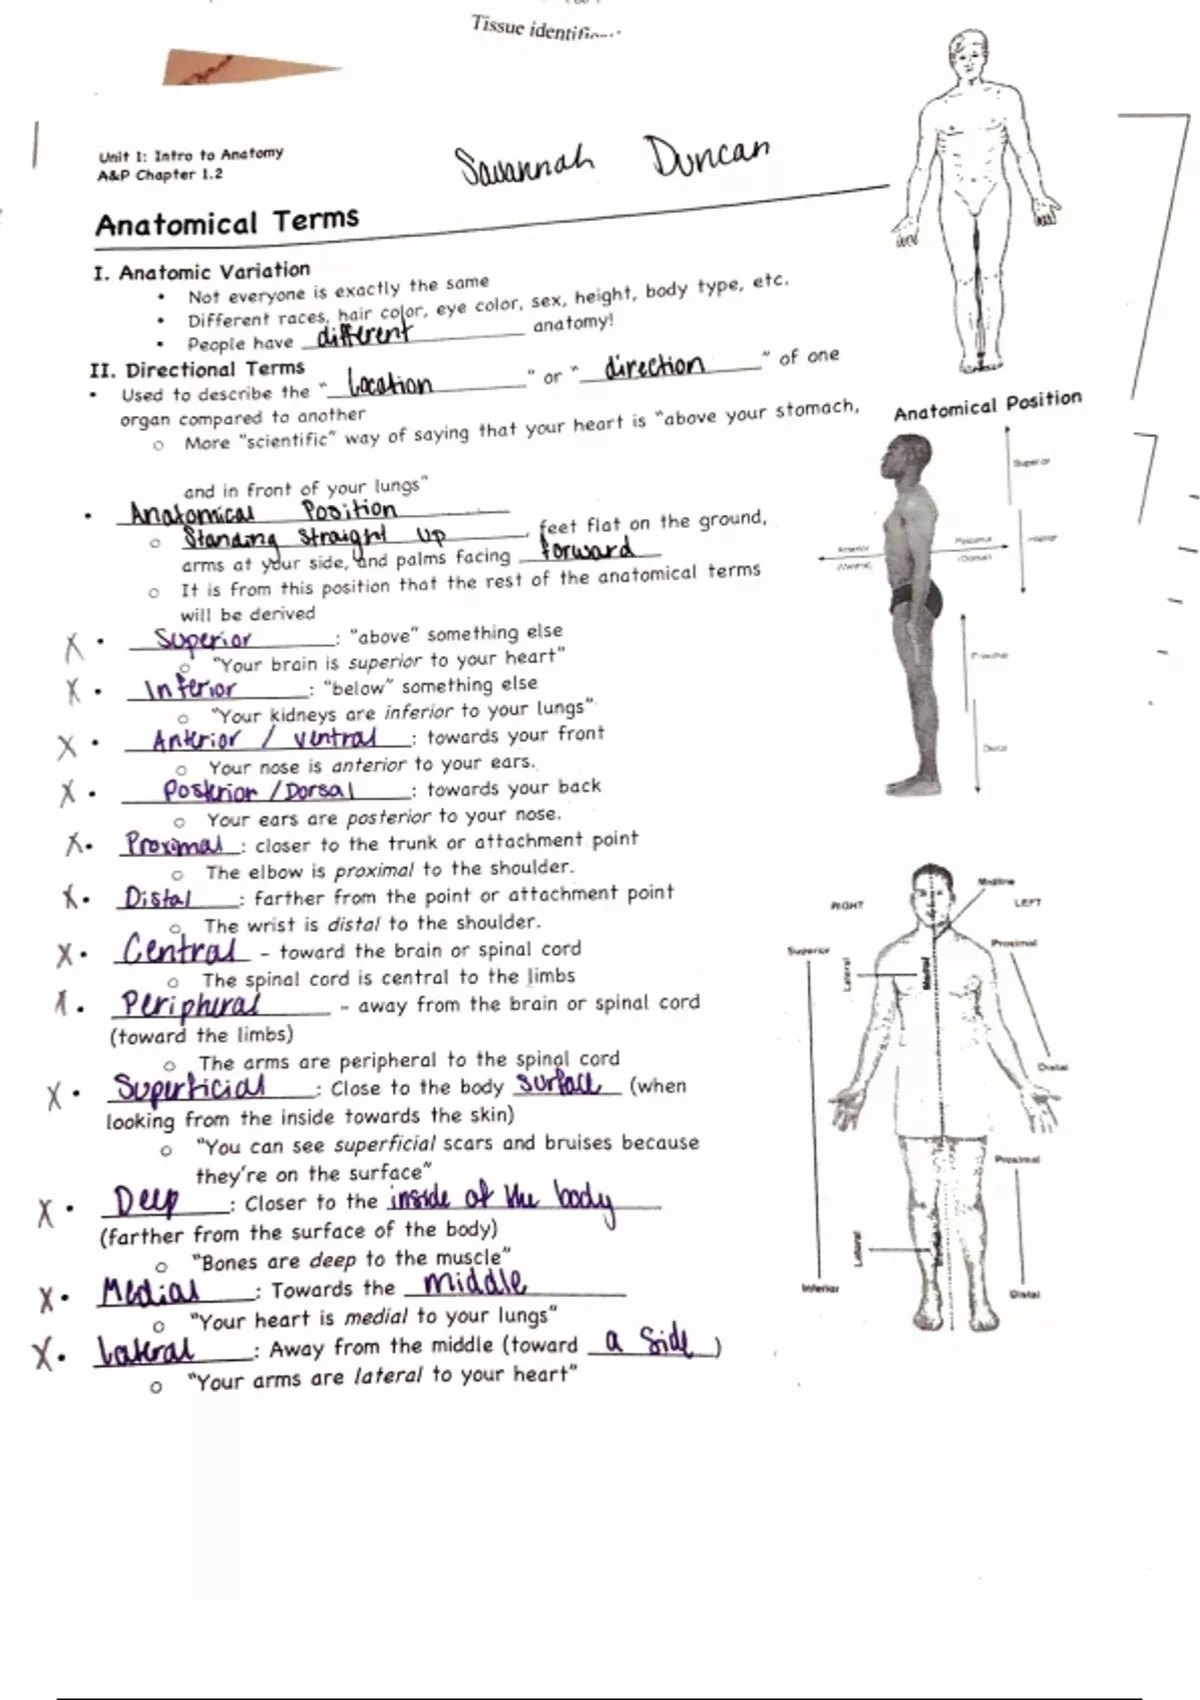 Tissue
Unit 1: Intro to Anatomy
A&P Chapter 1.2
Savannah Duncan
Anatomical Terms
I. Anatomic Variation
• Not everyone is exactly the same
• Different races, hair color, eye color, sex, height, body type, etc.
• People have different anatomy!
II. Directional Terms
• Used to describe the "location" or "direction" of one
organ compared to another
o More "scientific" way of saying that your heart is "above your stomach,
and in front of your lungs"
• Anatomical Position
o Standing straight up, feet flat on the ground,
arms at your side, and palms facing forward
o It is from this position that the rest of the anatomical terms
will be derived
X • Superior: "above" something else
o "Your brain is superior to your heart"
X • Inferior: "below" something else
o "Your kidneys are inferior to your lungs"
X • Anterior / ventral: towards your front
o Your nose is anterior to your ears.
X • Posterior / Dorsal: towards your back
o Your ears are posterior to your nose.
X • Proximal: closer to the trunk or attachment point
o The elbow is proximal to the shoulder.
X • Distal: farther from the point or attachment point
o The wrist is distal to the shoulder.
X • Central - toward the brain or spinal cord
o The spinal cord is central to the limbs
X • Peripheral - away from the brain or spinal cord
(toward the limbs)
o The arms are peripheral to the spinal cord
X • Superficial: Close to the body surface (when
looking from the inside towards the skin)
o "You can see superficial scars and bruises because
they're on the surface"
X • Deep: Closer to the inside of the body
(farther from the surface of the body)
o "Bones are deep to the muscle"
X • Medial: Towards the middle
o "Your heart is medial to your lungs"
X • Lateral: Away from the middle (toward a side)
o "Your arms are lateral to your heart"
Anatomical Position
Superior
Anterior
(Ventral)
Posterior
(Dorsal)
Inferior
Proximal
Distal
Midline
RIGHT
LEFT
Superior
Proximal
Lateral
Medial
Distal
Proximal
Lateral
Inferior
Distal